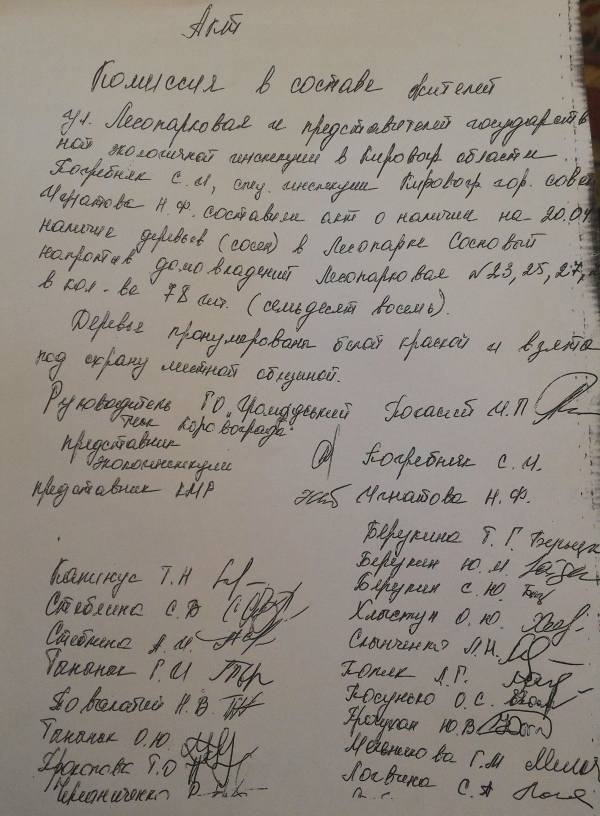 Акт
Комиссия в составе жителей
ул. Лесопарковая и представителей государств
ной экологичной инспекции в Кировогр области
Погребняк С. И, спец. инспекции Кировогр гор. совет
Игнатова Н. Ф. составили акт о наличие на 20.04
наличие деревьев (сосен) в Лесопарке Сосновый
напротив домовладений Лесопарковая №23, 25, 27,
в кол-ве 78 шт. (семьдесят восемь).
Деревье пронумерованы белой краской и взята
под охрану местной общиной.
Руководитель ГО "Громадський Погасий И. П
тиск Кіровограда"
представник
экоинспекции Погребняк С. И.
представник КМР Игнатова Н. Ф.
Берукина Т. Г.
Берукин Ю. И
Берукин С. Ю
Хлыстун О. Ю.
Л. Н.
Л. Г.
Косунько О. С.
Ю. В
Мельникова Г. М
Логвина С. А
Капинус Т. Н
Стеблина С. В
Стеблина А. И
Г. И
Н. В.
О. Ю.
Прокопова Т. О
Чередниченко